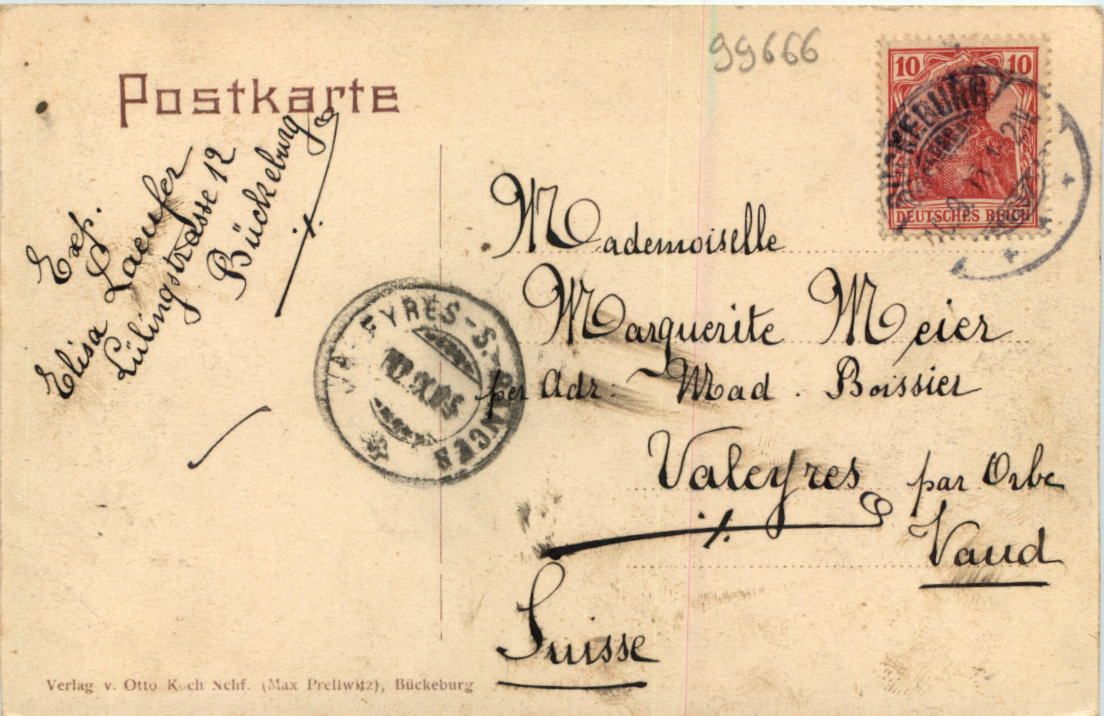 99666
Postkarte
10 10
BÜCKEBURG
DEUTSCHES REICH
Exp.
Elisa Laeufer
Lülingstrasse 12
Bückeburg
Mademoiselle
Marguerite Meier
per Adr. Mad. Boissier
Valeyres par Orbe
Vaud
Suisse
VALEYRES-S.-RANCES
Verlag v. Otto Koch Nchf. (Max Prellwitz), Bückeburg